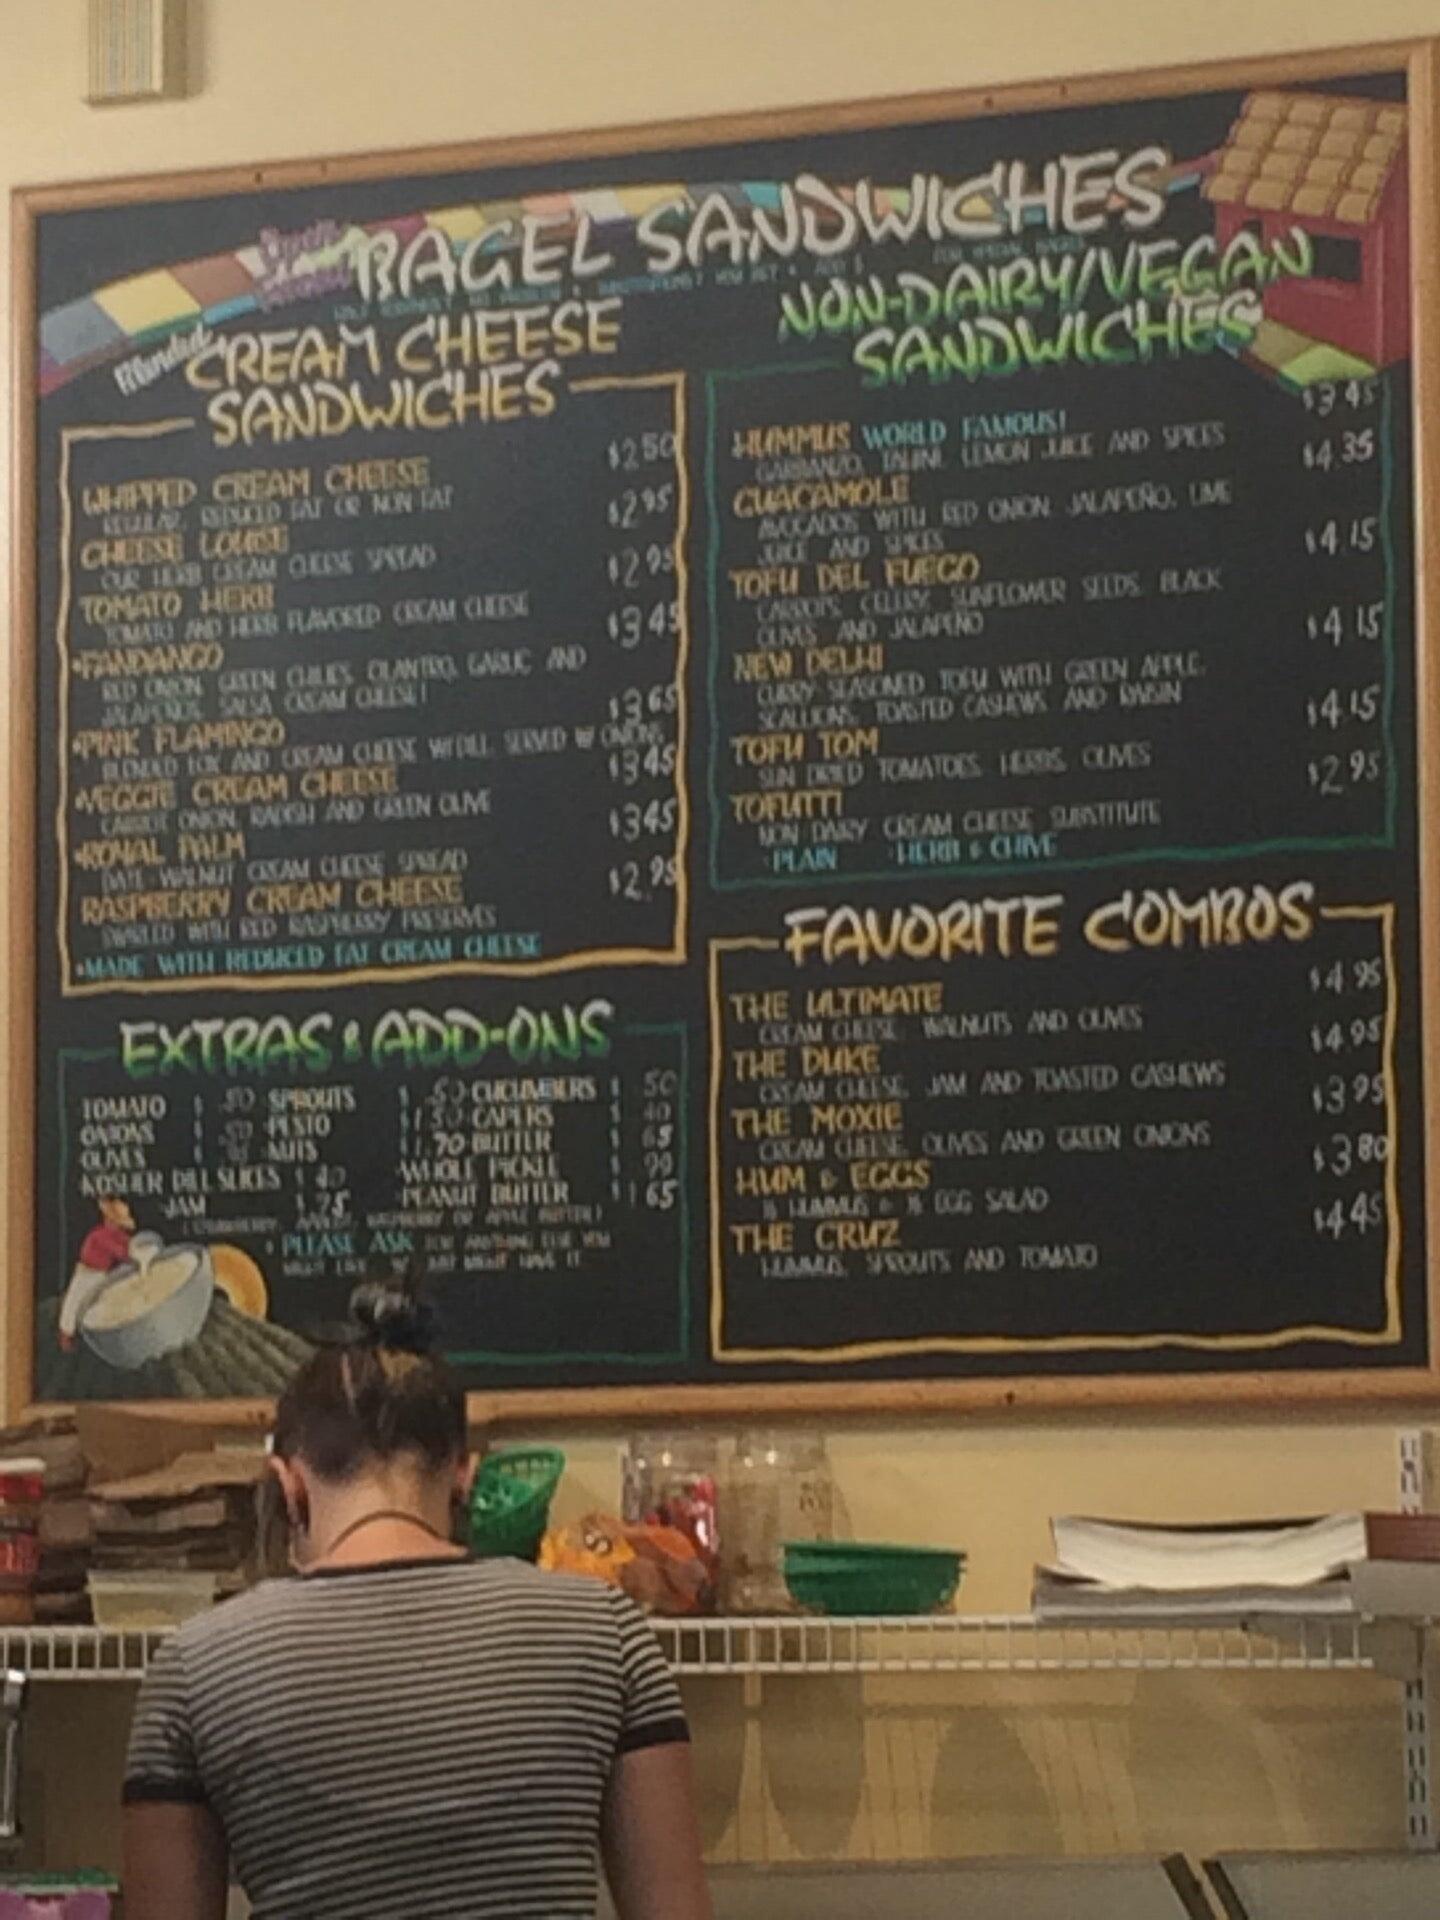 BAGEL SANDWICHES
Blended CREAM CHEESE
SANDWICHES
WHIPPED CREAM CHEESE $2.50
REGULAR, REDUCED FAT OR NON FAT
CHEESE LOUISE $2.95
OUR HERB CREAM CHEESE SPREAD
TOMATO HERB $2.95
TOMATO AND HERB FLAVORED CREAM CHEESE
•FANDANGO $3.45
RED ONION, GREEN CHILIES, CILANTRO, GARLIC AND
JALAPEÑOS, SALSA CREAM CHEESE!
•PINK FLAMINGO $3.65
BLENDED LOX AND CREAM CHEESE W/DILL, SERVED W/ ONIONS
•VEGGIE CREAM CHEESE $3.45
CARROT, ONION, RADISH AND GREEN OLIVE
•ROYAL PALM $3.45
DATE-WALNUT CREAM CHEESE SPREAD
RASPBERRY CREAM CHEESE $2.95
SWIRLED WITH RED RASPBERRY PRESERVES
•MADE WITH REDUCED FAT CREAM CHEESE
EXTRAS & ADD-ONS
TOMATO $ .50 SPROUTS $ .50 CUCUMBERS $ .50
ONIONS $ .50 PESTO $1.50 CAPERS $ .40
OLIVES $ NUTS $1.70 BUTTER $ .65
KOSHER DILL SLICES $ .40 WHOLE PICKLE $ .99
JAM 1.25 PEANUT BUTTER $1.65
RASPBERRY OR APPLE BUTTER)
• PLEASE ASK FOR ANYTHING ELSE YOU
MIGHT LIKE, WE JUST MIGHT HAVE IT
NON-DAIRY/VEGAN
SANDWICHES
HUMMUS WORLD FAMOUS! $3.45
GARBANZO, TAHINI, LEMON JUICE AND SPICES
GUACAMOLE $4.35
AVOCADOS WITH RED ONION, JALAPEÑO, LIME
JUICE AND SPICES
TOFU DEL FUEGO $4.15
CARROTS, CELERY, SUNFLOWER SEEDS, BLACK
OLIVES AND JALAPEÑO
NEW DELHI $4.15
CURRY SEASONED TOFU WITH GREEN APPLE,
SCALLIONS, TOASTED CASHEWS AND RAISIN
TOFU TOM $4.15
SUN DRIED TOMATOES, HERBS, OLIVES
TOFUTTI $2.95
NON DAIRY CREAM CHEESE SUBSTITUTE
•PLAIN •HERB & CHIVE
FAVORITE COMBOS
THE ULTIMATE $4.95
CREAM CHEESE, WALNUTS AND OLIVES
THE DUKE $4.95
CREAM CHEESE, JAM AND TOASTED CASHEWS
THE MOXIE $3.95
CREAM CHEESE, OLIVES AND GREEN ONIONS
HUM & EGGS $3.80
½ HUMMUS & ½ EGG SALAD
THE CRUZ $4.45
HUMMUS, SPROUTS AND TOMATO